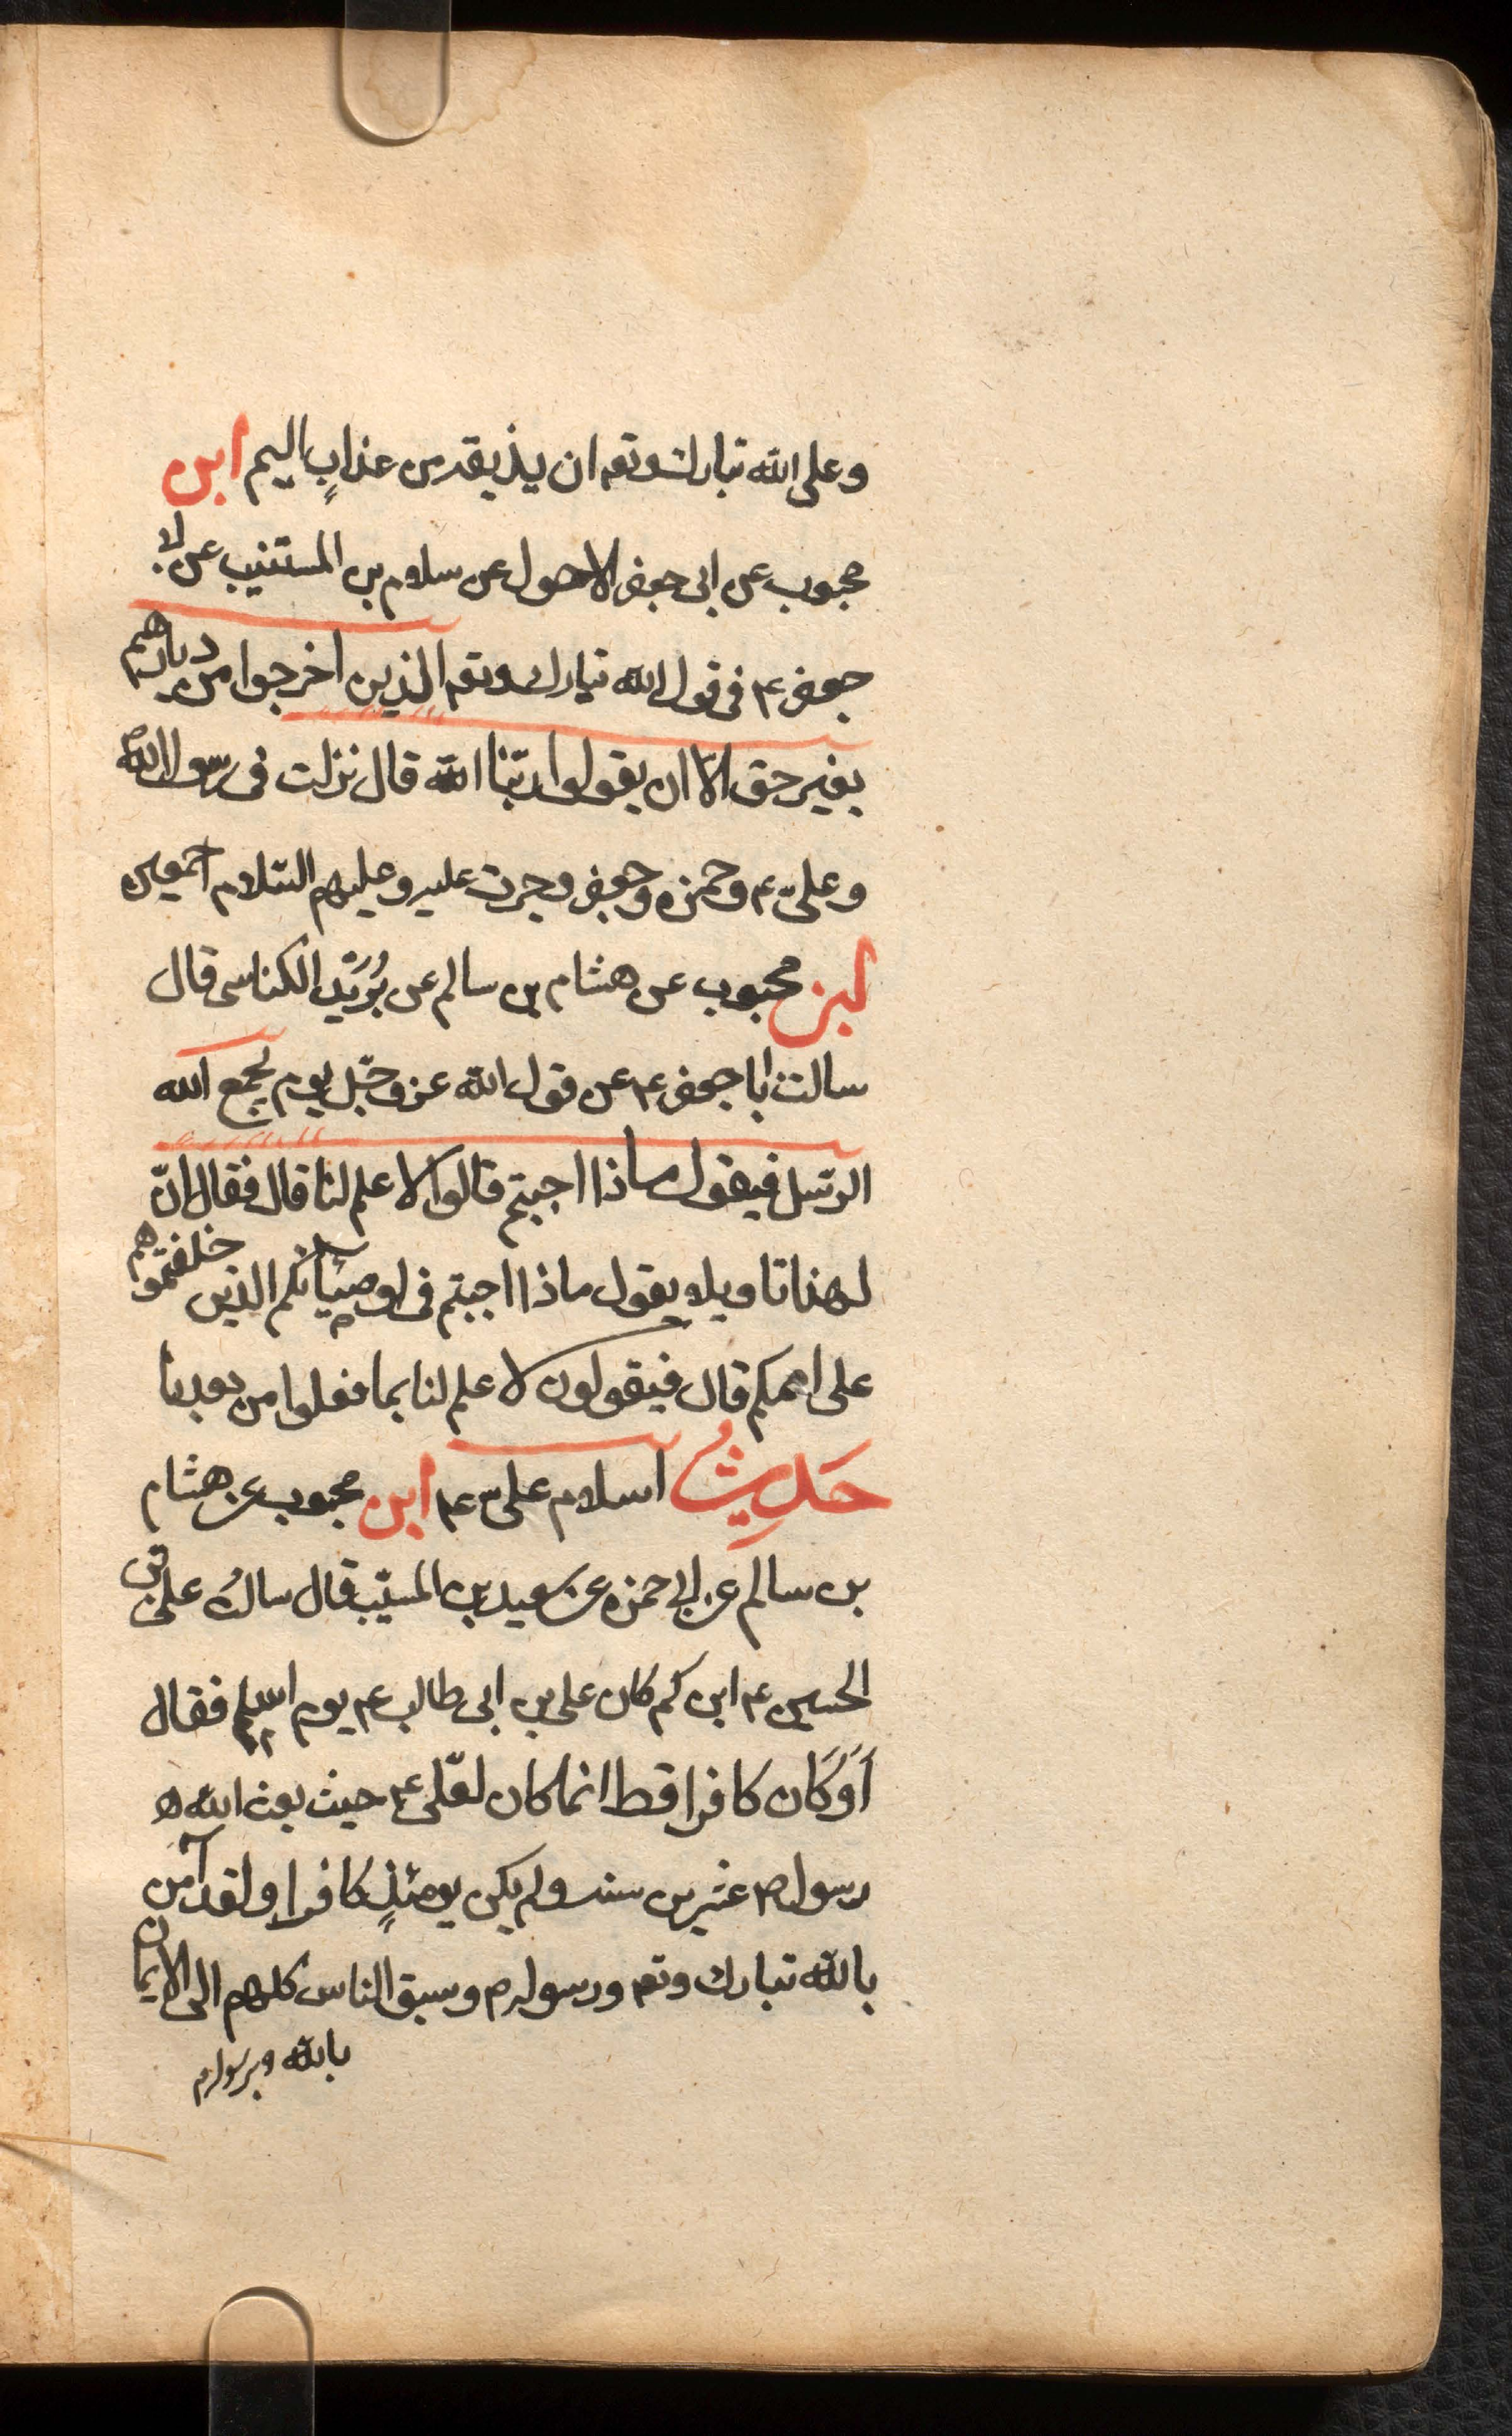 وعلى الله تبارك وتعـ ان يذيقه من عذابٍ اليم ابن
محبوب عن ابى جعفر الاحول عن سلام بن المستنيب عن ابى
جعفر ع فى قول الله تبارك وتعـ الذين اخرجوا من ديارهم
بغير حق الاّ ان يقولوا ربّنا الله قال نزلت فى رسول الله ص
وعلىّ ع وحمزه وجعفر وجرت عليه وعليهم السّلام اجمعين
ابن محبوب عن هشام بن سالم عن بُرَيْد الكناسى قال
سالت ابا جعفر ع عن قول الله عز وجّل يوم يجمع الله
الرّسل فيقول ماذا اجبتم قالوا لا علم لنا قال فقال انّ
لهذا تاويلا يقول ماذا اجبتم فى اوصيائكم الذين خلفتموهم
على اممكم قال فيقولون لا علم لنا بما فعلوا من بعدنا
حَدِيثُ اسلام علىّ ع ابن محبوب عن هشام
بن سالم عن ابى حمزه عن سعيد بن المسيّب قال سالتُ على بن
الحسين ع ابن كم كان على بن ابى طالب ع يوم اسلم فقال
اَوَكَان كافرا قط انما كان لعّلى ع حيث بعث الله ه
رسوله ص عشر سنه ولم يكن يومئذٍ كافرا ولقد آمن
بالله تبارك وتعـ ورسوله ص وسبق الناس كلهم الى الايمان
بالله وبرسوله ص